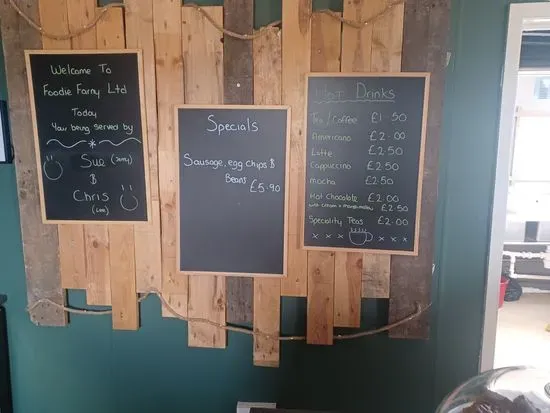 Welcome To
Foodie Farny Ltd
Today
Your being served by
Sue
&
Chris
Specials
Sausage, egg, chips &
Beans £5.90
Hot Drinks
Tea / Coffee £1.50
Americano £2.00
Latte £2.50
Cappuccino £2.50
mocha £2.50
Hot Chocolate £2.00
with cream & marshmallow £2.50
Speciality Teas £2.00
x x x x x x